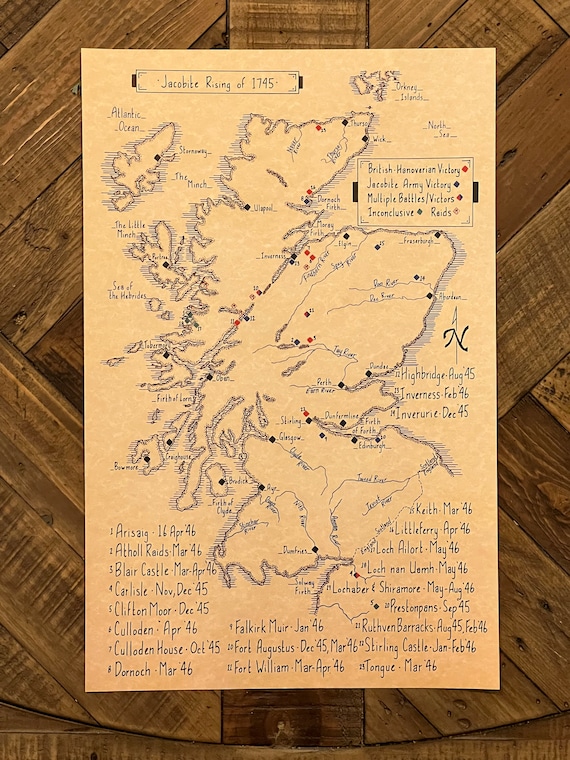 Jacobite Rising of 1745
Orkney
Islands
Atlantic
Ocean
North
Sea
Thurso
Wick
Stornoway
The
Minch
British-Hanoverian Victory
Jacobite Army Victory
Multiple Battles/Victors
Inconclusive Raids
Dornoch
Firth
Ullapool
The Little
Minch
Moray
Firth
Elgin
Fraserburgh
Portree
Inverness
Findhorn River
Spey River
Sea of
The Hebrides
Don River
Dee River
Aberdeen
N
Tobermory
Tay River
Dundee
Oban
Perth
Earn River
Firth of Lorn
12 Highbridge·Aug'45
13 Inverness·Feb'46
14 Inverurie·Dec'45
Stirling
Dunfermline
Firth
of Forth
Glasgow
Edinburgh
Craighouse
Bowmore
Clyde River
Brodick
Firth of
Clyde
Ayr
Tweed River
Nith River
Dumfries
Solway
Firth
15 Keith·Mar'46
16 Littleferry·Apr'46
17 Loch Ailort·May'46
18 Loch nan Uamh·May'46
19 Lochaber & Shiramore·May-Aug'46
20 Prestonpans·Sep'45
21 Ruthven Barracks·Aug'45, Feb'46
22 Stirling Castle·Jan-Feb'46
23 Tongue·Mar'46
1 Arisaig·16 Apr'46
2 Atholl Raids·Mar'46
3 Blair Castle·Mar-Apr'46
4 Carlisle·Nov, Dec'45
5 Clifton Moor·Dec'45
6 Culloden·Apr'46
7 Culloden House·Oct'45
8 Dornoch·Mar'46
9 Falkirk Muir·Jan'46
10 Fort Augustus·Dec'45, Mar'46
11 Fort William·Mar-Apr'46